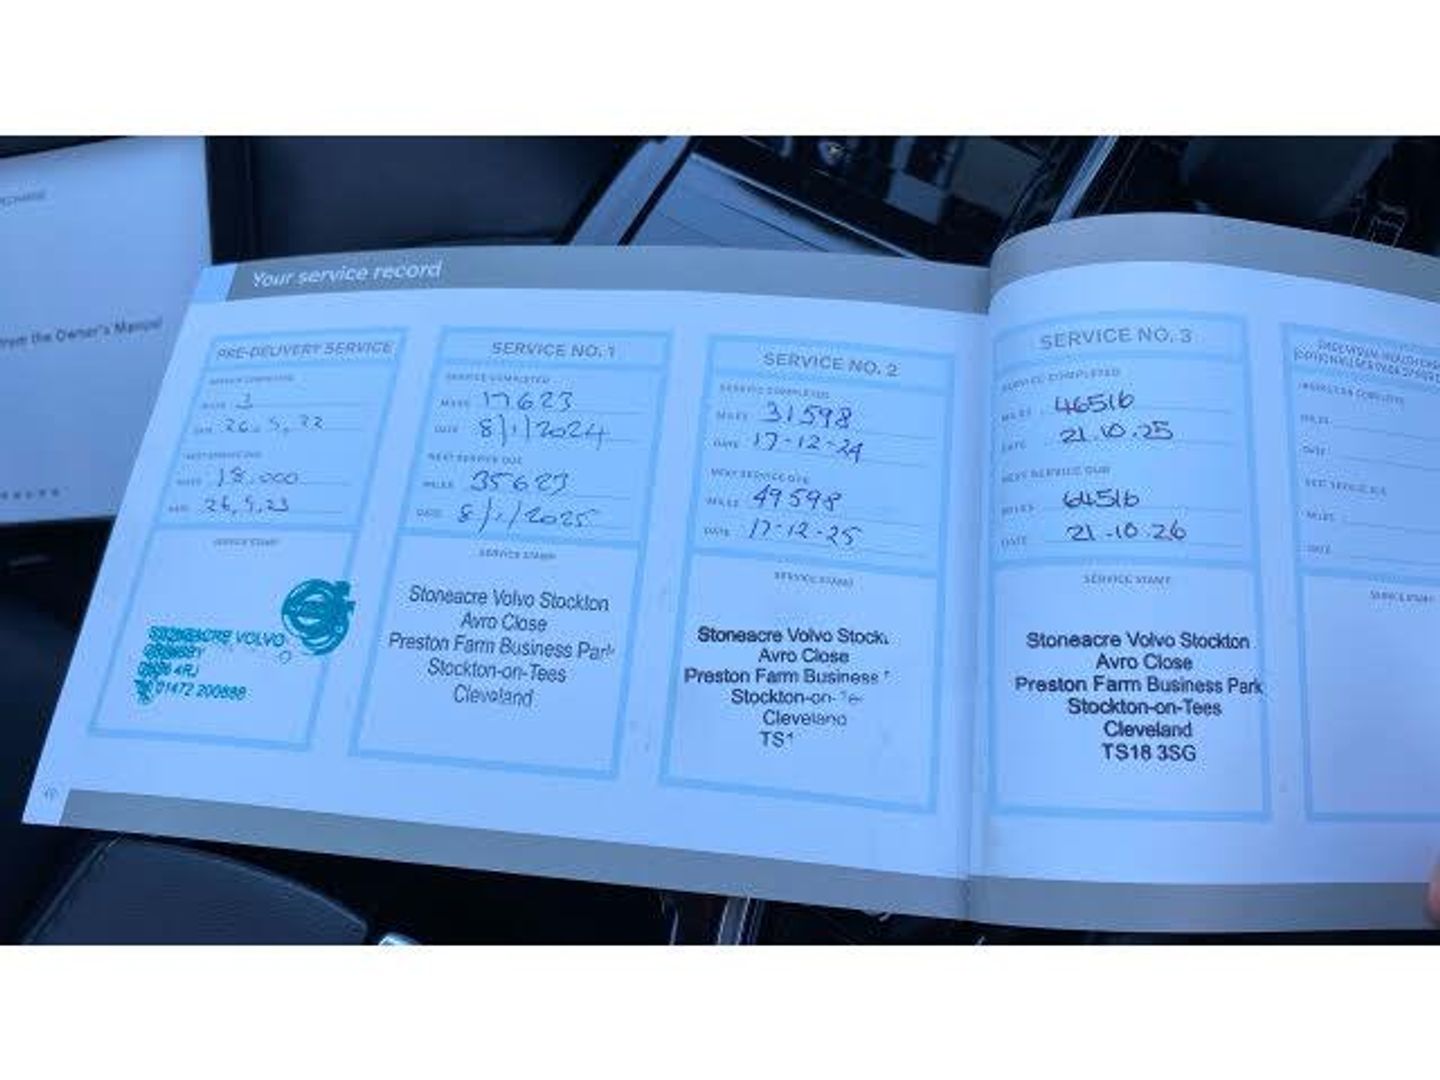 from the Owner's Manual
Your service record
PRE-DELIVERY SERVICE
SERVICE COMPLETED
MILES 3
DATE 26.5.22
NEXT SERVICE DUE
MILES 18.000
DATE 26.5.23
SERVICE STAMP
STONEACRE VOLVO
GRIMSBY
4RJ
01472 200888
SERVICE NO. 1
SERVICE COMPLETED
MILES 17623
DATE 8/1/2024
NEXT SERVICE DUE
MILES 35623
DATE 8/1/2025
SERVICE STAMP
Stoneacre Volvo Stockton
Avro Close
Preston Farm Business Park
Stockton-on-Tees
Cleveland
SERVICE NO. 2
SERVICE COMPLETED
MILES 31598
DATE 17-12-24
NEXT SERVICE DUE
MILES 49598
DATE 17-12-25
SERVICE STAMP
Stoneacre Volvo Stock
Avro Close
Preston Farm Business
Stockton-on-Te
Cleveland
TS1
SERVICE NO. 3
SERVICE COMPLETED
MILES 46516
DATE 21.10.25
NEXT SERVICE DUE
MILES 64516
DATE 21.10.26
SERVICE STAMP
Stoneacre Volvo Stockton
Avro Close
Preston Farm Business Park
Stockton-on-Tees
Cleveland
TS18 3SG
MILES
DATE
NEXT SERVICE DUE
MILES
DATE
SERVICE STAMP